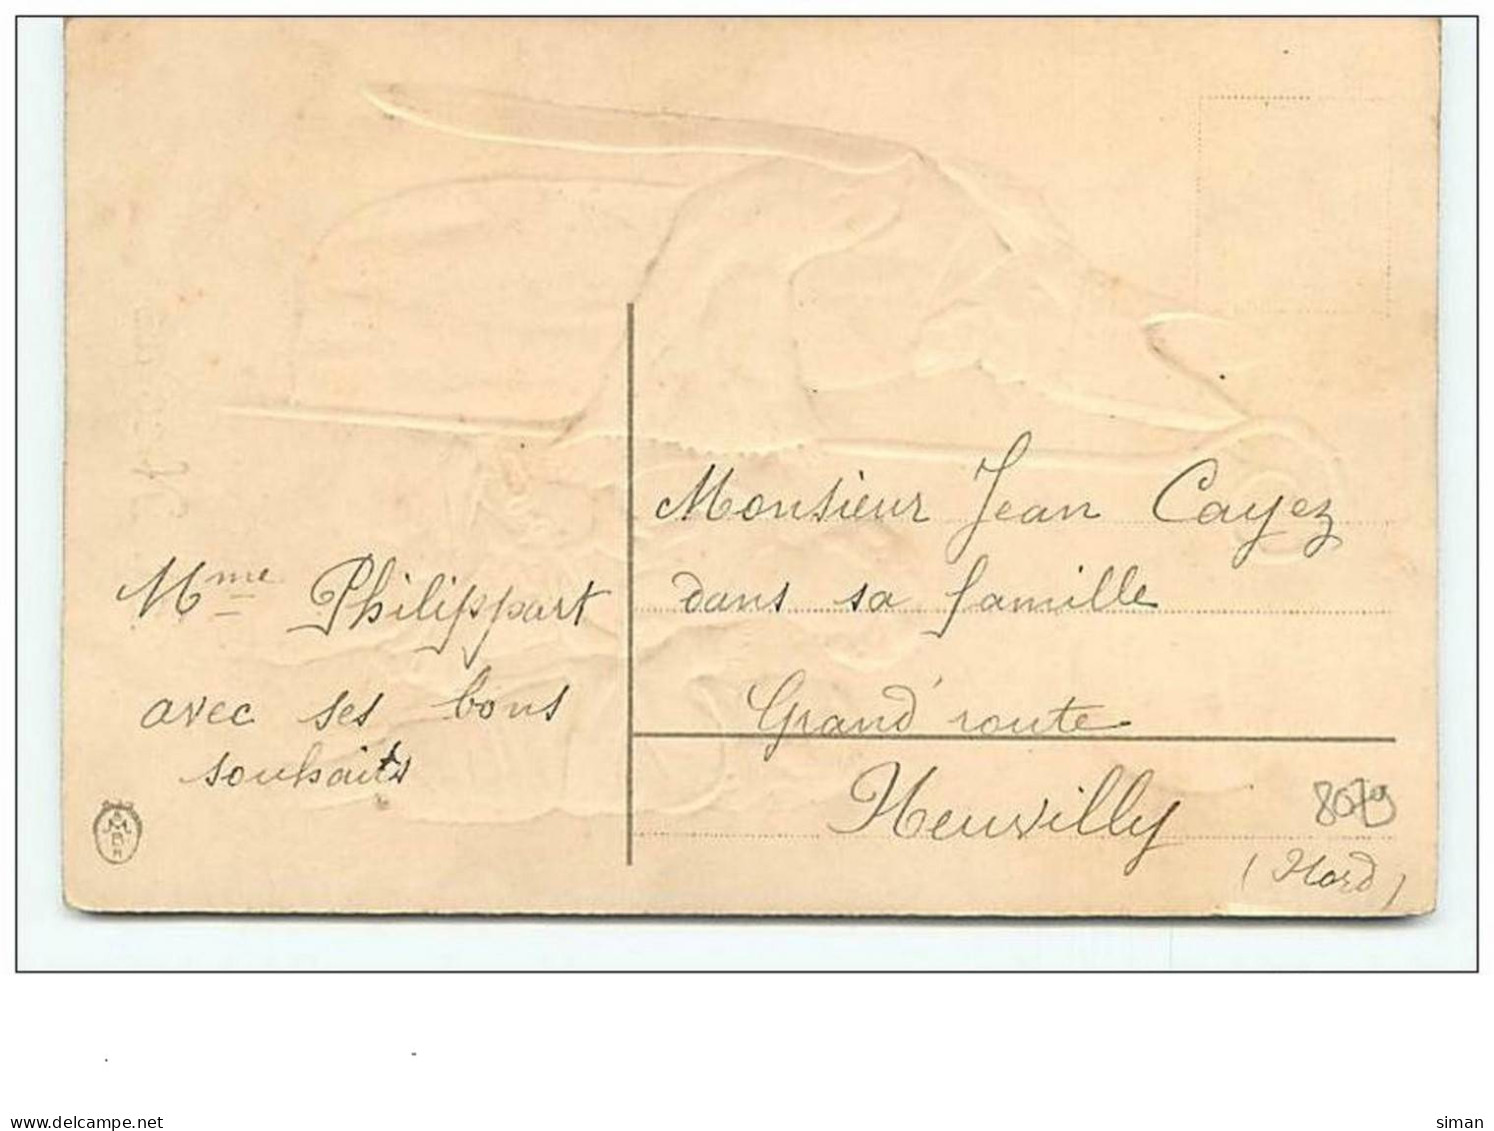 Mme Philippart
avec ses bons
souhaits
Monsieur Jean Cayez
dans sa famille
Grand'route
Neuvilly
(Nord)
8079
www.delcampe.net
siman